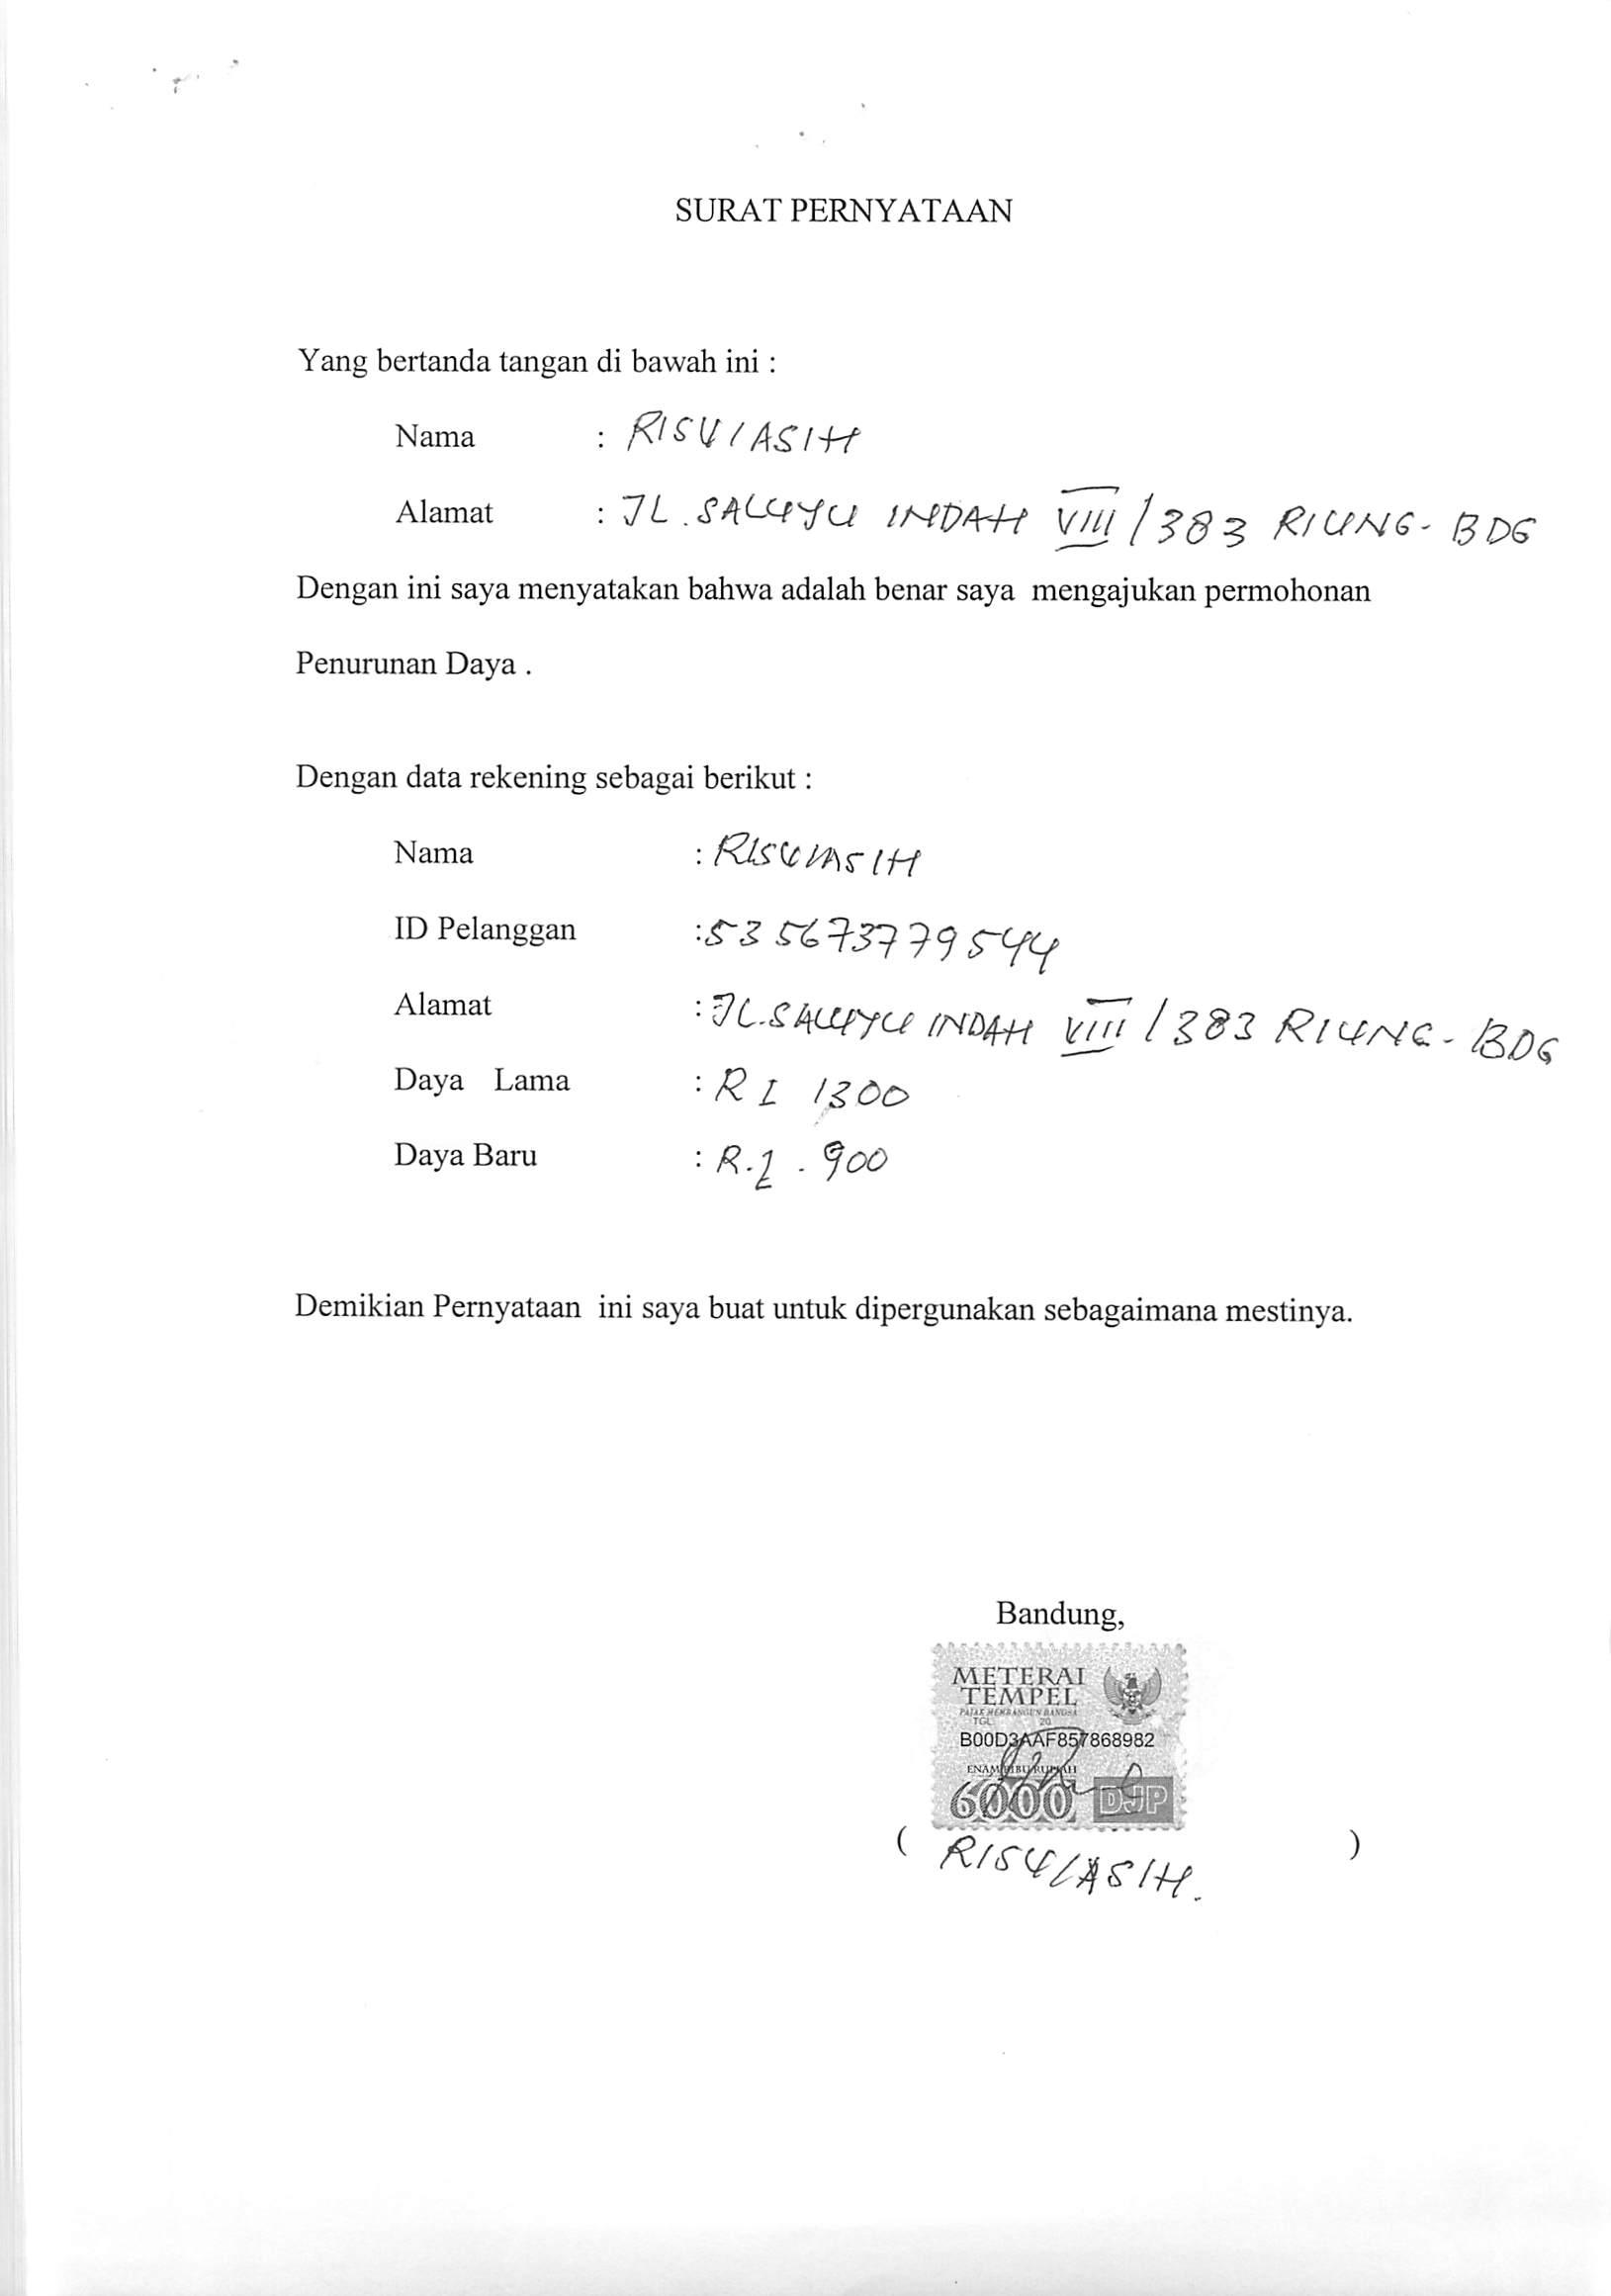 SURAT PERNYATAAN
Yang bertanda tangan di bawah ini :
Nama : RISWIASIH
Alamat : JL. SALUYU INDAH VIII / 383 RIUNG - BDG
Dengan ini saya menyatakan bahwa adalah benar saya mengajukan permohonan
Penurunan Daya .
Dengan data rekening sebagai berikut :
Nama : RISWIASIH
ID Pelanggan : 535673779544
Alamat : JL. SALUYU INDAH VIII / 383 RIUNG - BDG
Daya Lama : R I 1300
Daya Baru : R.1 . 900
Demikian Pernyataan ini saya buat untuk dipergunakan sebagaimana mestinya.
Bandung,
METERAI
TEMPEL
PAJAK MEMBANGUN BANGSA
TGL. 20
B00D3AAF857868982
ENAM RIBU RUPIAH
6000 DJP
( RISWIASIH. )